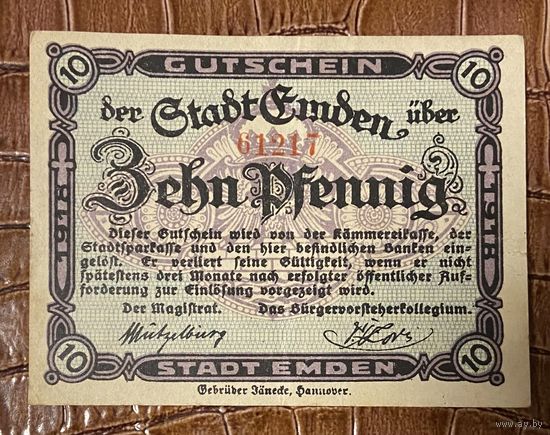 GUTSCHEIN
10 10
der Stadt Emden über
61217
Zehn Pfennig
1918 1918
Dieser Gutschein wird von der Kämmereikasse, der
Stadtsparkasse und den hier befindlichen Banken ein-
gelöst. Er verliert seine Gültigkeit, wenn er nicht
spätestens drei Monate nach erfolgter öffentlicher Auf-
forderung zur Einlösung vorgezeigt wird.
Der Magistrat. Das Bürgervorsteherkollegium.
Mützelburg
10 10
STADT EMDEN
Gebrüder Jänecke, Hannover.
www.ay.by